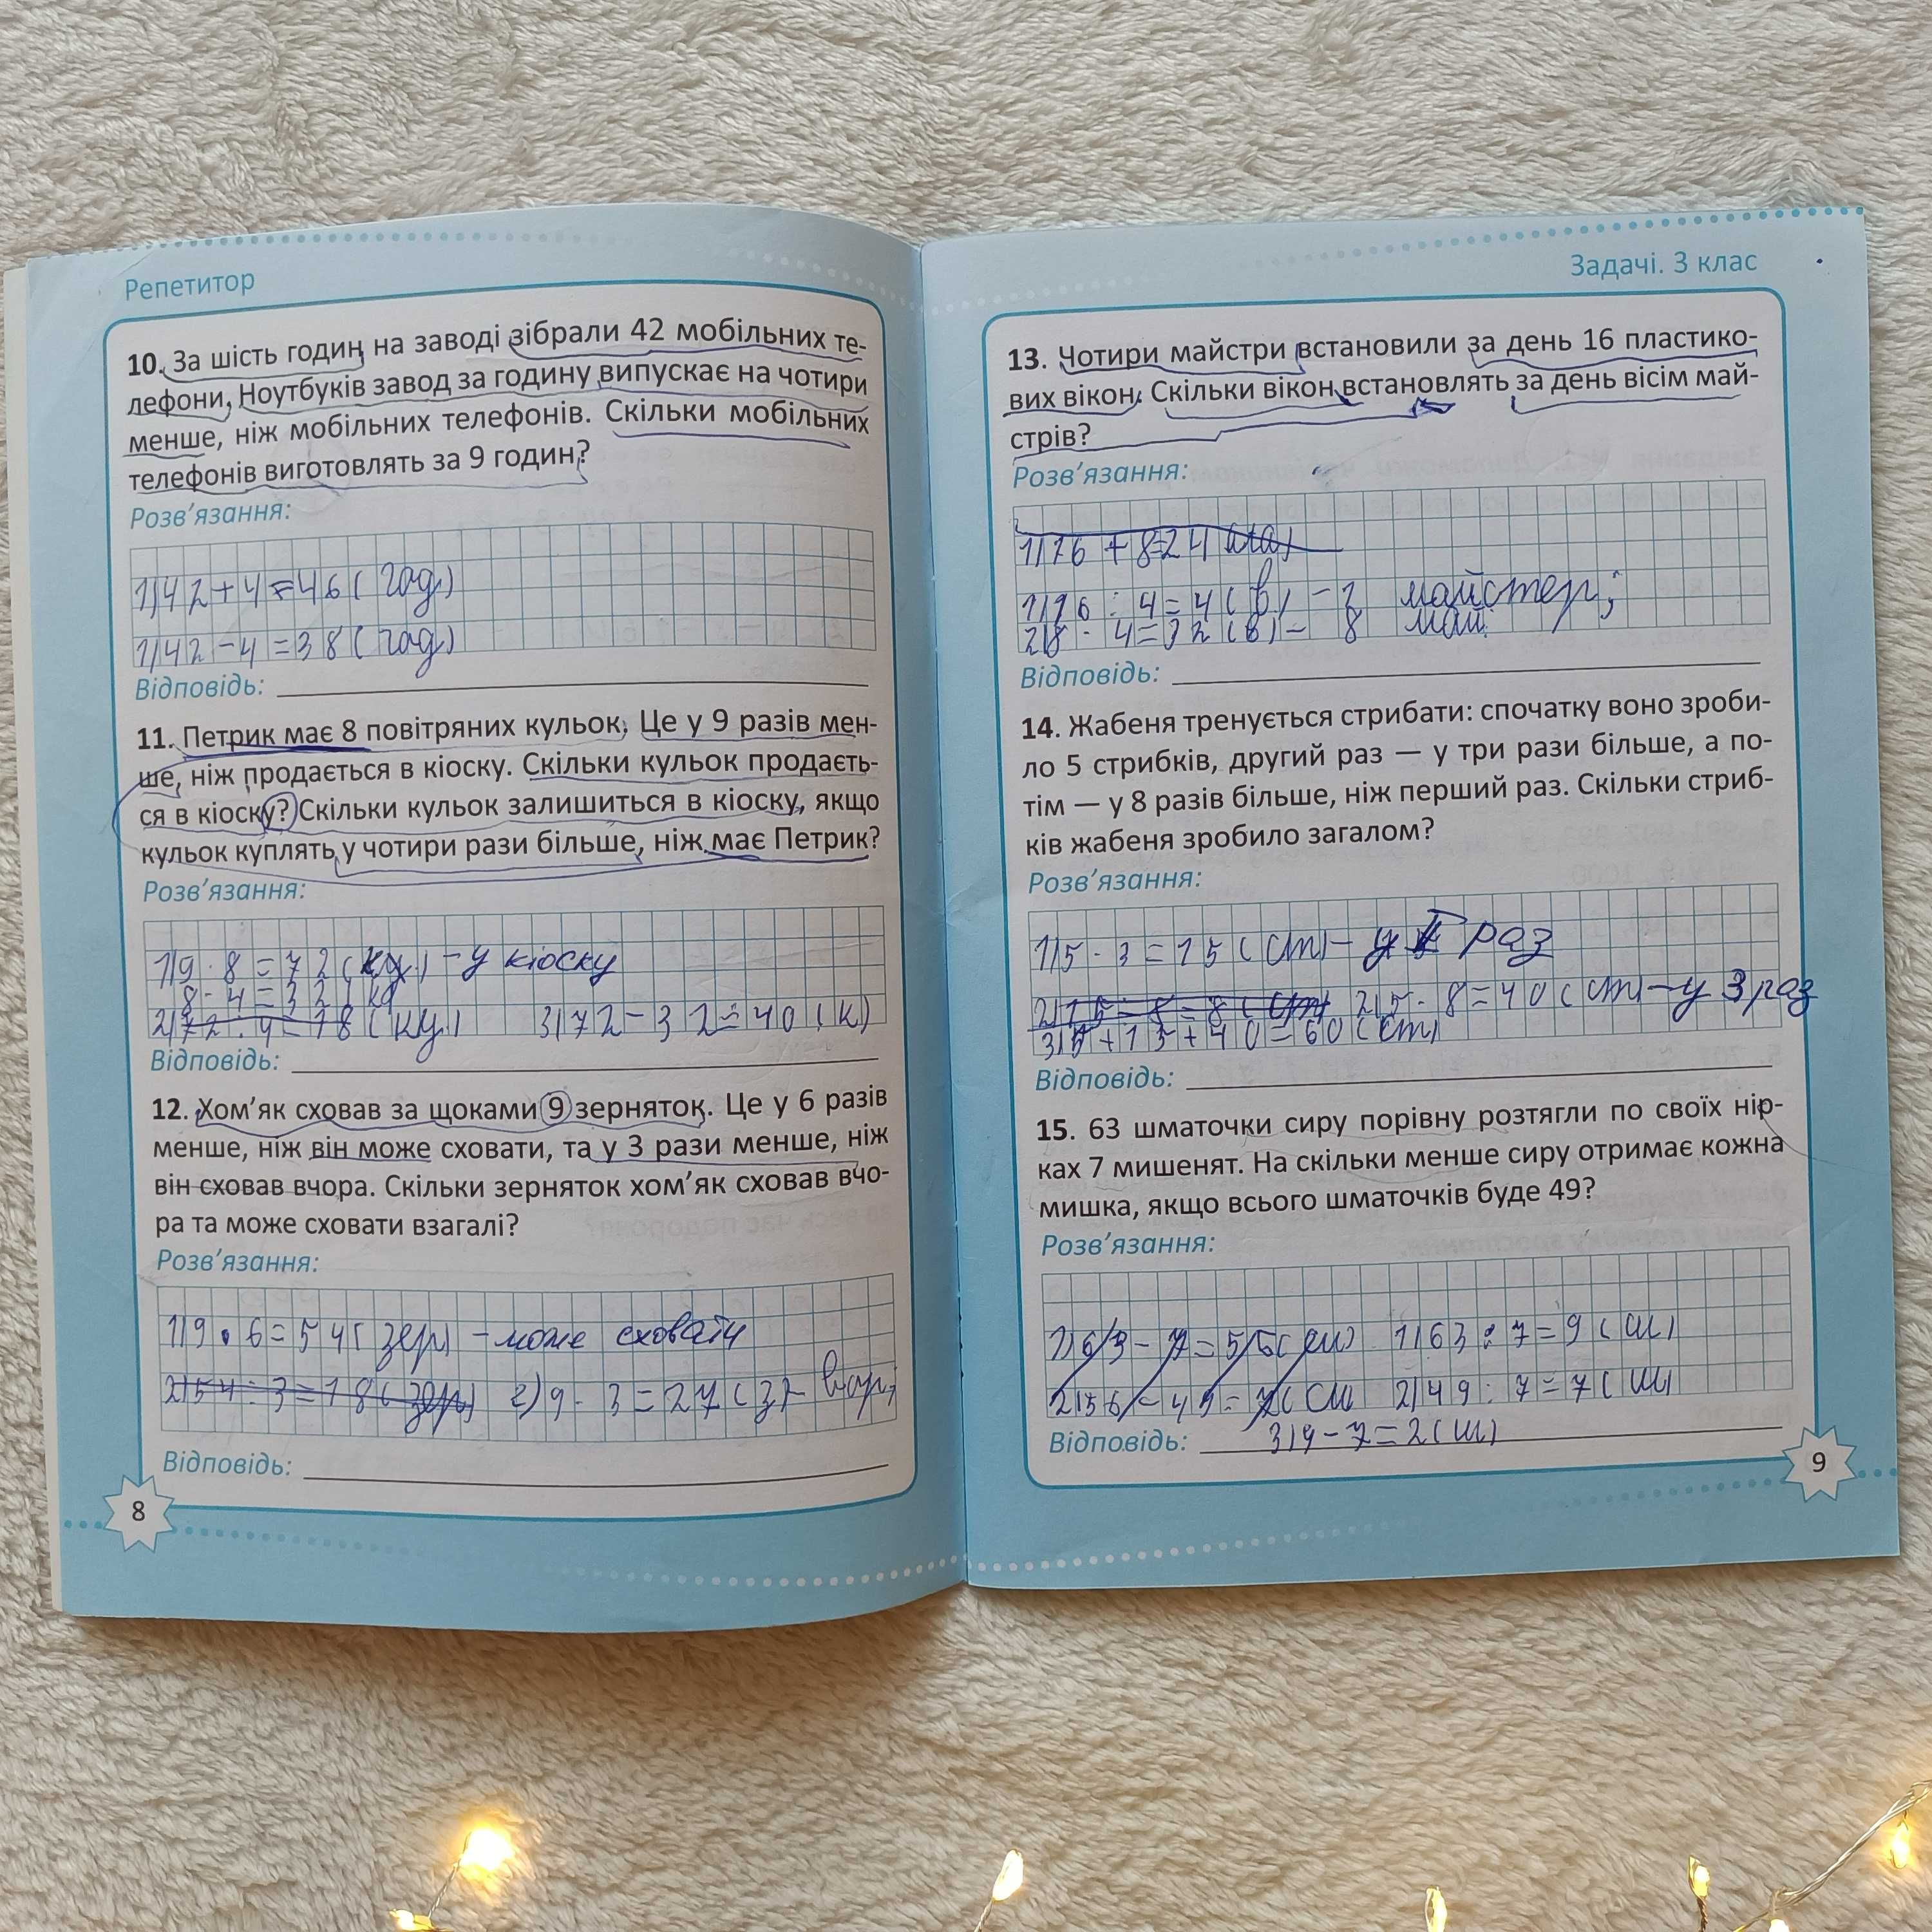 Репетитор
10. За шість годин на заводі зібрали 42 мобільних те-
лефони. Ноутбуків завод за годину випускає на чотири
менше, ніж мобільних телефонів. Скільки мобільних
телефонів виготовлять за 9 годин?
Розв'язання:
1) 42 + 4 = 46 ( год)
1) 42 - 4 = 38 ( год)
Відповідь:
11. Петрик має 8 повітряних кульок. Це у 9 разів мен-
ше, ніж продається в кіоску. Скільки кульок продаєть-
ся в кіоску? Скільки кульок залишиться в кіоску, якщо
кульок куплять у чотири рази більше, ніж має Петрик?
Розв'язання:
1) 9 · 8 = 72 ( ку.) - у кіоску
8 · 4 = 32 ( ку
2) 72 : 4 = 18 ( ку.) 3) 72 - 32 = 40 ( к)
Відповідь:
12. Хом'як сховав за щоками 9 зерняток. Це у 6 разів
менше, ніж він може сховати, та у 3 рази менше, ніж
він сховав вчора. Скільки зерняток хом'як сховав вчо-
ра та може сховати взагалі?
Розв'язання:
1) 9 · 6 = 54 ( зер) - може сховати
2) 54 : 3 = 18 ( зер) 2) 9 · 3 = 27 ( з) - вчор,
Відповідь:
8
Задачі. 3 клас
13. Чотири майстри встановили за день 16 пластико-
вих вікон. Скільки вікон встановлять за день вісім май-
стрів?
Розв'язання:
1) 16 + 8 = 24
1) 16 : 4 = 4 ( в) - 1 майстер;
2) 8 · 4 = 32 ( в) - 8 май.
Відповідь:
14. Жабеня тренується стрибати: спочатку воно зроби-
ло 5 стрибків, другий раз — у три рази більше, а по-
тім — у 8 разів більше, ніж перший раз. Скільки стриб-
ків жабеня зробило загалом?
Розв'язання:
1) 5 · 3 = 15 ( ст) - у раз
2) 15 : 8 = 8 ( ст) 2) 5 · 8 = 40 ( ст) - у 3 раз
3) 5 + 15 + 40 = 60 ( ст)
Відповідь:
15. 63 шматочки сиру порівну розтягли по своїх нір-
ках 7 мишенят. На скільки менше сиру отримає кожна
мишка, якщо всього шматочків буде 49?
Розв'язання:
1) 63 - 7 = 56 ( ш) 1) 63 : 7 = 9 ( ш)
2) 56 - 49 = 7 ( ш 2) 49 : 7 = 7 ( ш)
Відповідь: 3) 9 - 7 = 2 ( ш)
9